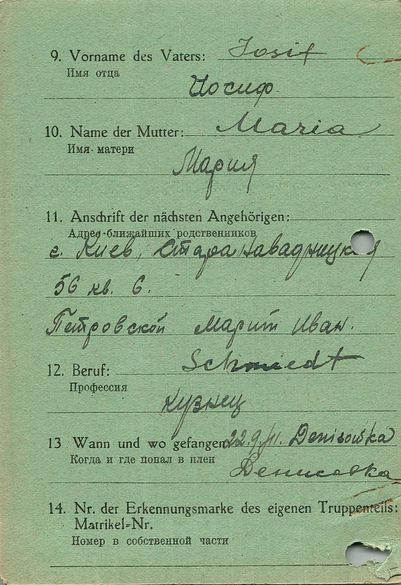 9. Vorname des Vaters: Iosif
Имя отца
Иосиф.
10. Name der Mutter: Maria
Имя матери
Мария
11. Anschrift der nächsten Angehörigen:
Адрес ближайших родственников
г. Киев, Стара
56 кв. 6.
Петровской Марии Иван.
12. Beruf: Schmiedt
Профессия
Кузнец
13 Wann und wo gefangen: 22.9/41. Denisowka
Когда и где попал в плен
14. Nr. der Erkennungsmarke des eigenen Truppenteils:
Matrikel-Nr.
Номер в собственной части